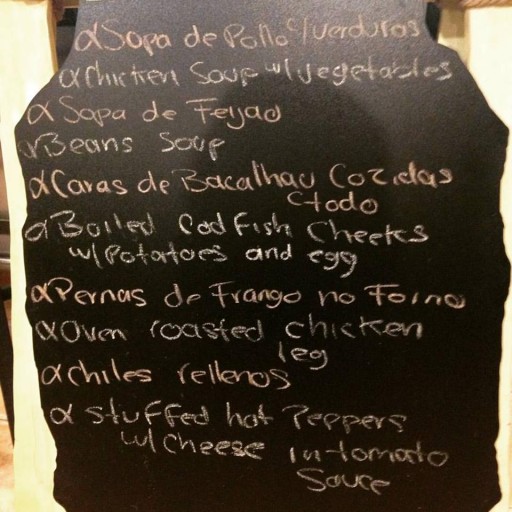 αSopa de Pollo c/verduras
αChicken Soup w/vegetables
αSopa de Feijao
αBeans Soup
αCaras de Bacalhau Cozidas
c+todo
αBoiled Cod Fish Cheeks
w/Potatoes and egg
αPernas de Frango no Forno
αOven roasted chicken
leg
αchiles rellenos
α stuffed hot Peppers
w/cheese in tomato
Sauce